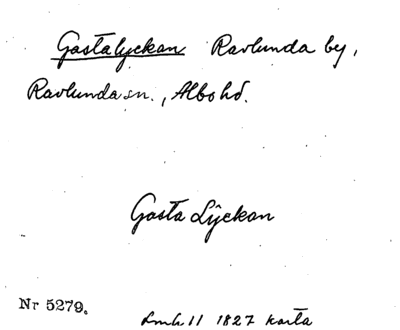 Gastalyckan Ravlunda by,
Ravlunda sn., Albo hd.
Gasta Lÿckan
Nr 5279.
Lmh 11 1827 karta